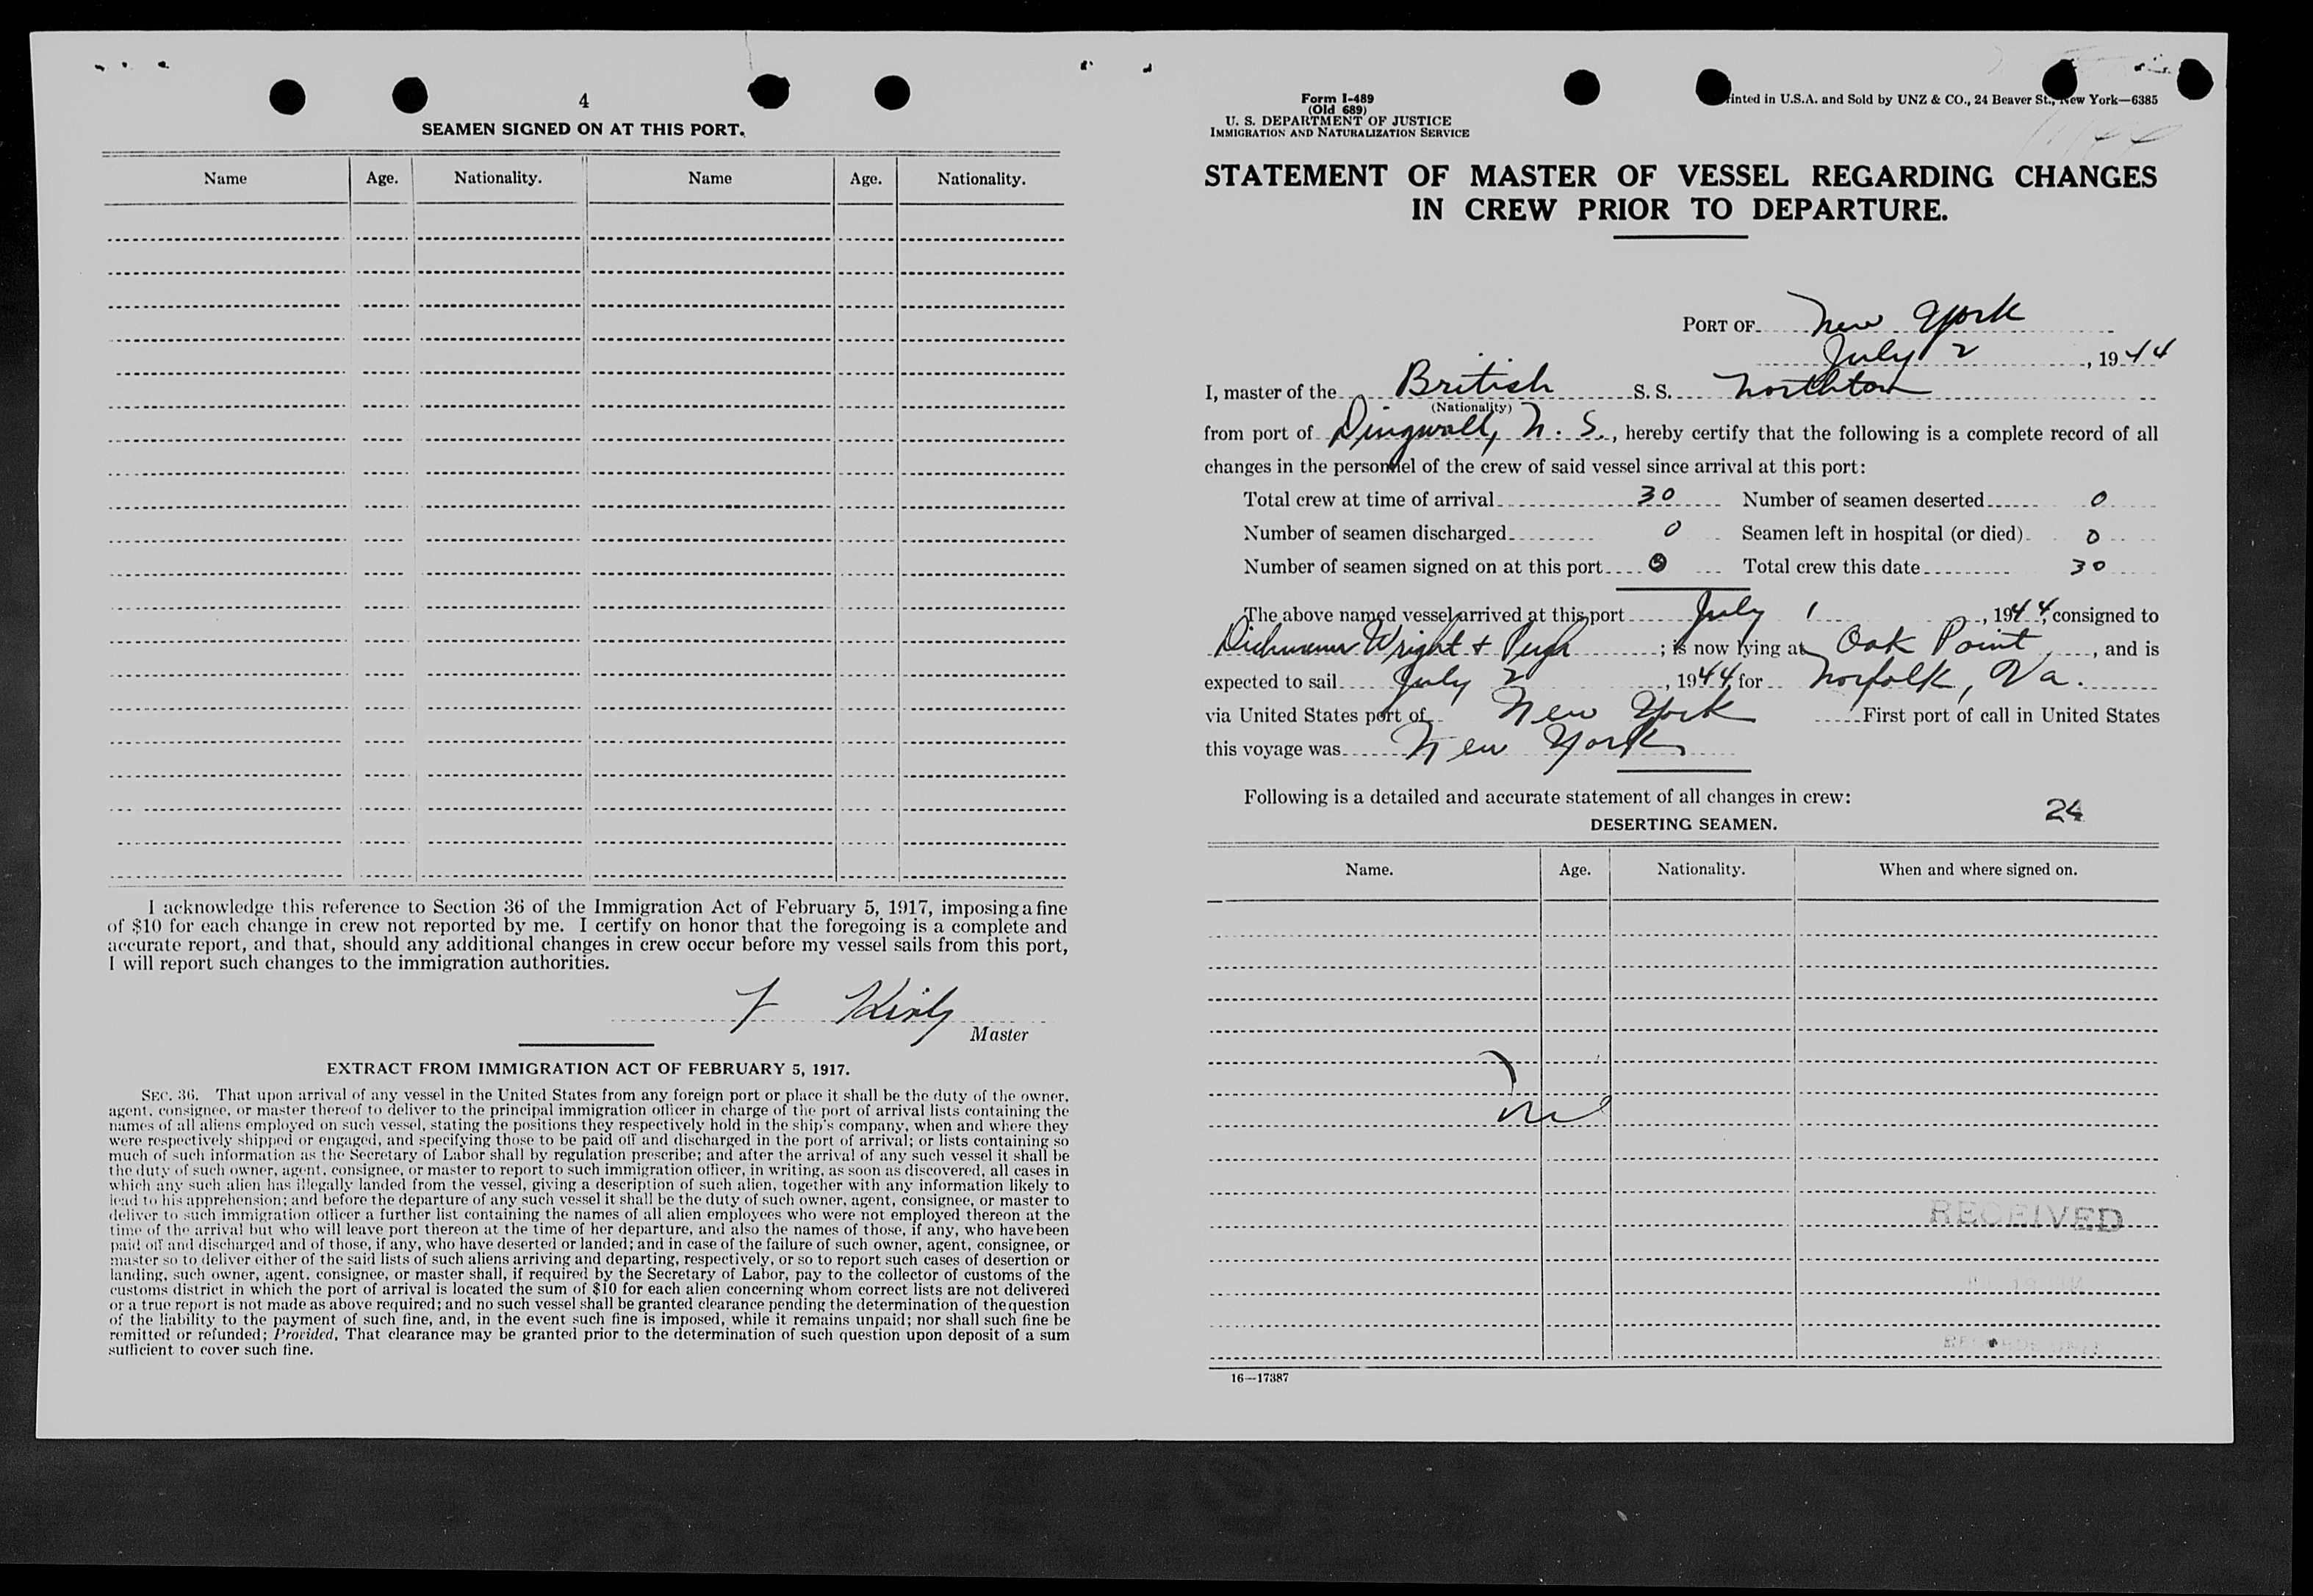 4
SEAMEN SIGNED ON AT THIS PORT.
Name Age. Nationality. Name Age. Nationality.
I acknowledge this reference to Section 36 of the Immigration Act of February 5, 1917, imposing a fine
of $10 for each change in crew not reported by me. I certify on honor that the foregoing is a complete and
accurate report, and that, should any additional changes in crew occur before my vessel sails from this port,
I will report such changes to the immigration authorities.
Master
EXTRACT FROM IMMIGRATION ACT OF FEBRUARY 5, 1917.
SEC. 36. That upon arrival of any vessel in the United States from any foreign port or place it shall be the duty of the owner,
agent, consignee, or master thereof to deliver to the principal immigration officer in charge of the port of arrival lists containing the
names of all aliens employed on such vessel, stating the positions they respectively hold in the ship's company, when and where they
were respectively shipped or engaged, and specifying those to be paid off and discharged in the port of arrival; or lists containing so
much of such information as the Secretary of Labor shall by regulation prescribe; and after the arrival of any such vessel it shall be
the duty of such owner, agent, consignee, or master to report to such immigration officer, in writing, as soon as discovered, all cases in
which any such alien has illegally landed from the vessel, giving a description of such alien, together with any information likely to
lead to his apprehension; and before the departure of any such vessel it shall be the duty of such owner, agent, consignee, or master to
deliver to such immigration officer a further list containing the names of all alien employees who were not employed thereon at the
time of the arrival but who will leave port thereon at the time of her departure, and also the names of those, if any, who have been
paid off and discharged and of those, if any, who have deserted or landed; and in case of the failure of such owner, agent, consignee, or
master so to deliver either of the said lists of such aliens arriving and departing, respectively, or so to report such cases of desertion or
landing, such owner, agent, consignee, or master shall, if required by the Secretary of Labor, pay to the collector of customs of the
customs district in which the port of arrival is located the sum of $10 for each alien concerning whom correct lists are not delivered
or a true report is not made as above required; and no such vessel shall be granted clearance pending the determination of the question
of the liability to the payment of such fine, and, in the event such fine is imposed, while it remains unpaid; nor shall such fine be
remitted or refunded; Provided, That clearance may be granted prior to the determination of such question upon deposit of a sum
sufficient to cover such fine.
Form I-489
(Old 689)
U. S. DEPARTMENT OF JUSTICE
IMMIGRATION AND NATURALIZATION SERVICE
Printed in U.S.A. and Sold by UNZ & CO., 24 Beaver St., New York—6385
STATEMENT OF MASTER OF VESSEL REGARDING CHANGES
IN CREW PRIOR TO DEPARTURE.
PORT OF New York
July 2, 1944
I, master of the British S. S. Northton
(Nationality)
from port of Dingwall, N. S., hereby certify that the following is a complete record of all
changes in the personnel of the crew of said vessel since arrival at this port:
Total crew at time of arrival 30 Number of seamen deserted 0
Number of seamen discharged 0 Seamen left in hospital (or died) 0
Number of seamen signed on at this port 0 Total crew this date 30
The above named vessel arrived at this port July 1, 1944, consigned to
Dichmann Wright & Pugh; is now lying at Oak Point, and is
expected to sail July 2, 1944, for Norfolk, Va.
via United States port of New York First port of call in United States
this voyage was New York
Following is a detailed and accurate statement of all changes in crew:
24
DESERTING SEAMEN.
Name. Age. Nationality. When and where signed on.
Nil
RECEIVED
16—17387